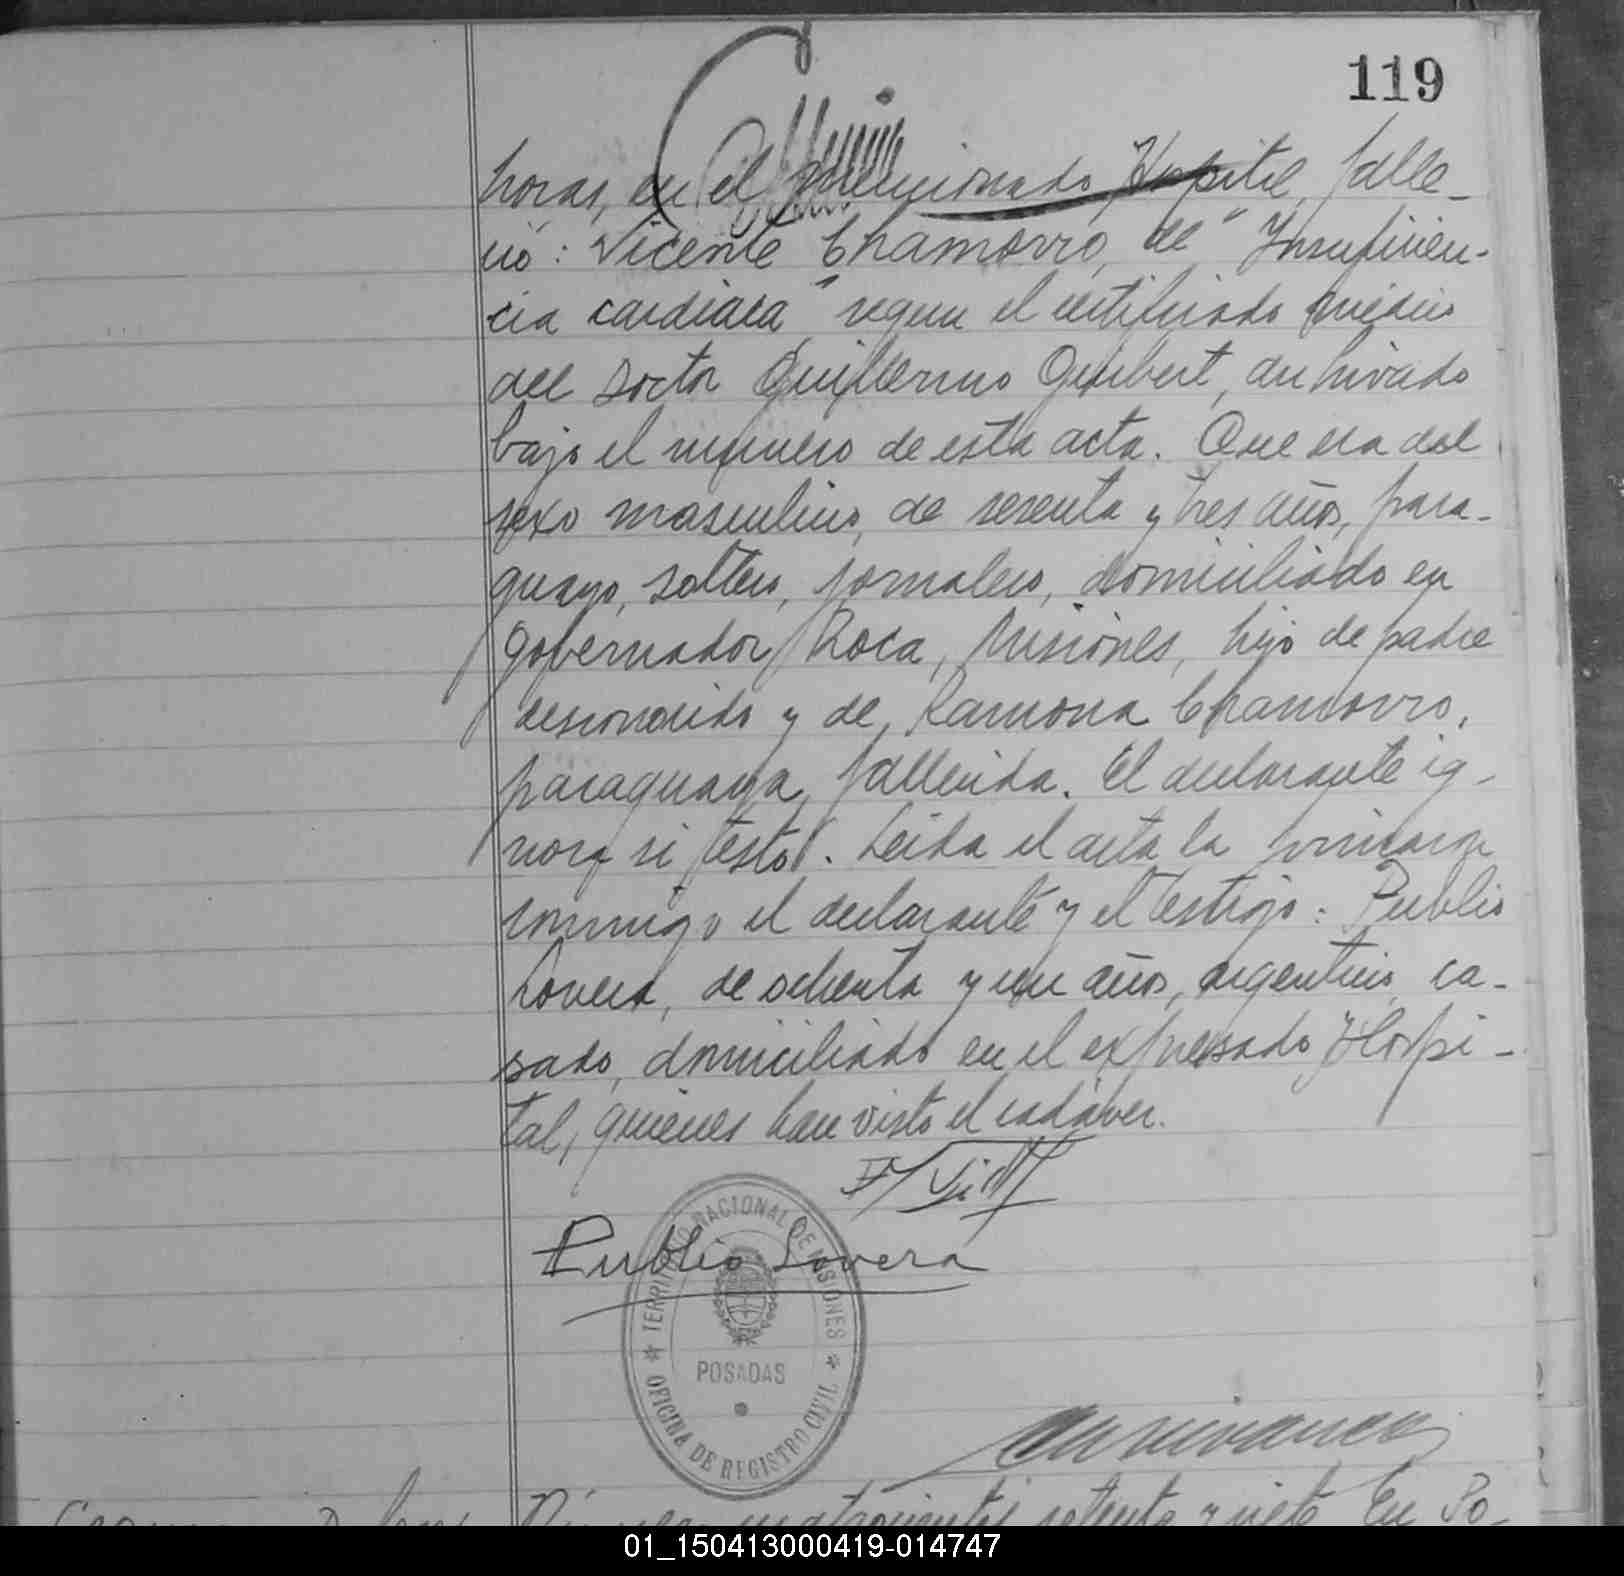 119
horas, en el mencionado Hospital, falle-
ció: Vicente Chamorro, de "Insuficien-
cia cardiaca" segun el certificado médico
del Doctor Guillermo Gibert, archivado
bajo el número de esta acta. Que era del
sexo masculino, de sesenta y tres años, para-
guayo, soltero, jornalero, domiciliado en
Gobernador Roca, Misiones, hijo de padre
desconocido y de Ramona Chamorro,
paraguaya, fallecida. El declarante ig-
nora si testó. Leida el acta la firmaron
conmigo el declarante y el testigo: Publio
Lovera, de ochenta y un años, argentino, ca-
sado, domiciliado en el expresado Hospi-
tal, quienes han visto el cadáver.
Publio Lovera
TERRITORIO NACIONAL DE MISIONES
POSADAS
OFICINA DE REGISTRO CIVIL
cuatrocientos setenta y siete En Po-
01_150413000419-014747